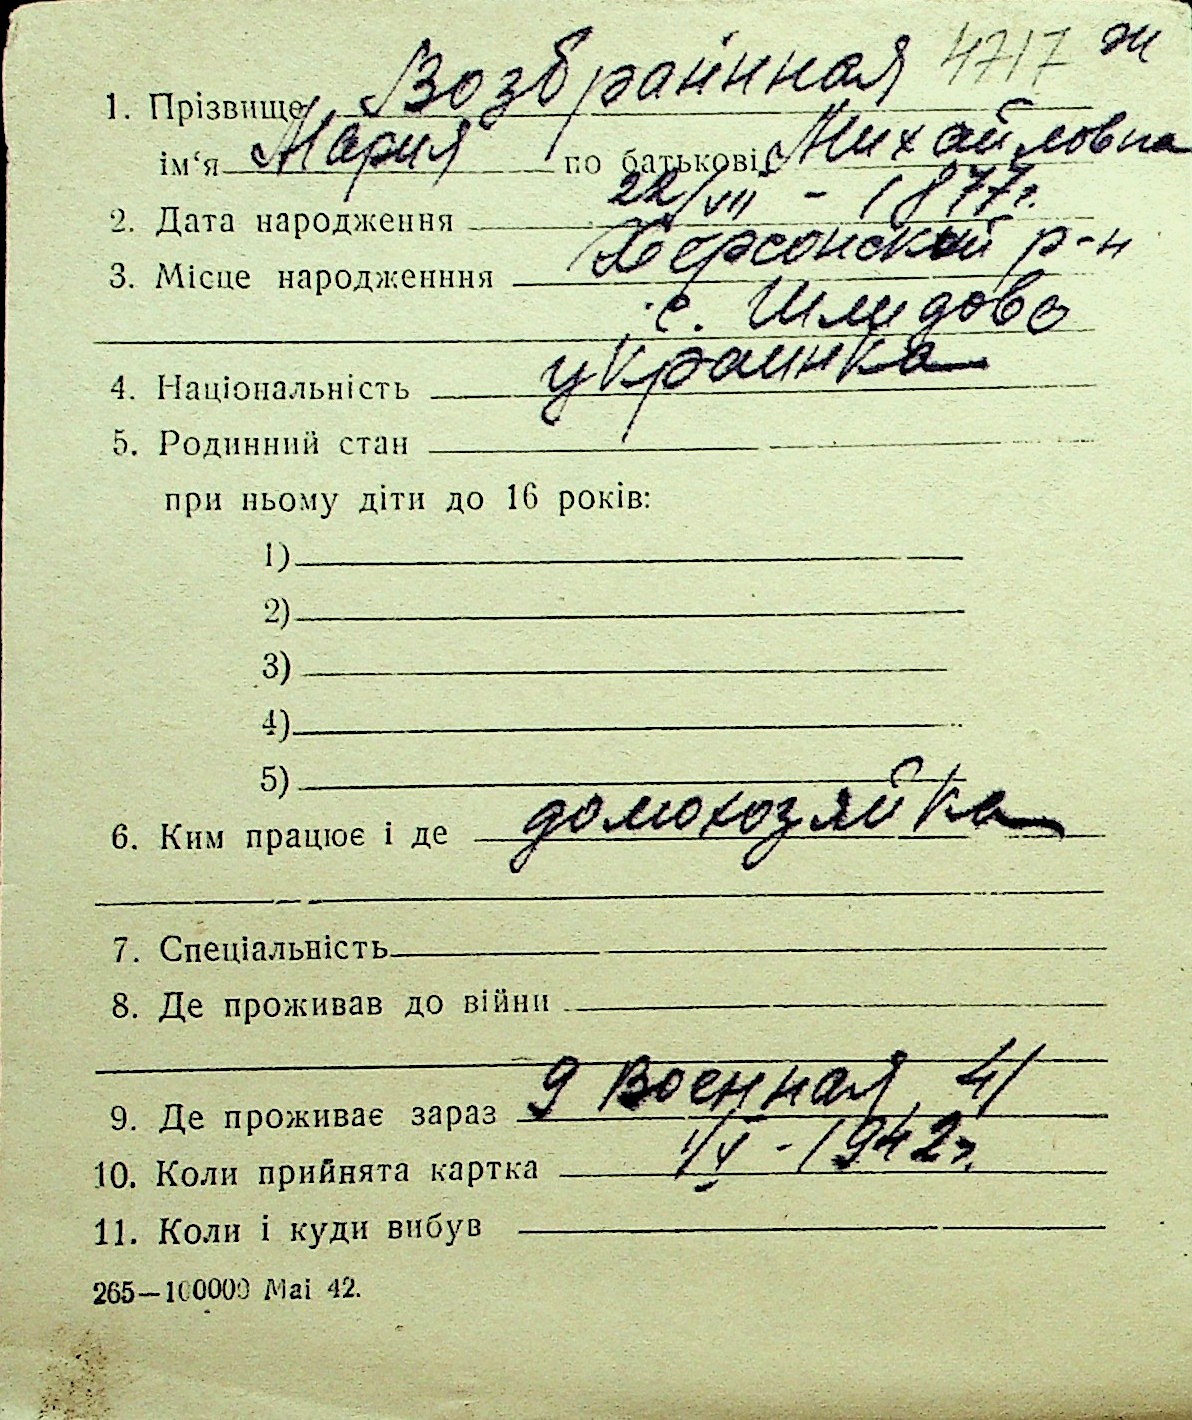 4717 ж
1. Прізвище Возбранная
ім‘я Мария по батькові Михайловна
2. Дата народження 22/VII - 1877г.
3. Місце народженння Херсонский р-н
с. Шлидово
4. Національність украинка
5. Родинний стан
при ньому діти до 16 років:
1)
2)
3)
4)
5)
6. Ким працює і де домохозяйка
7. Спеціальність
8. Де проживав до війни
9. Де проживає зараз 9 Военная 41
10. Коли прийнята картка 1/V - 1942г.
11. Коли і куди вибув
265—100000 Mai 42.